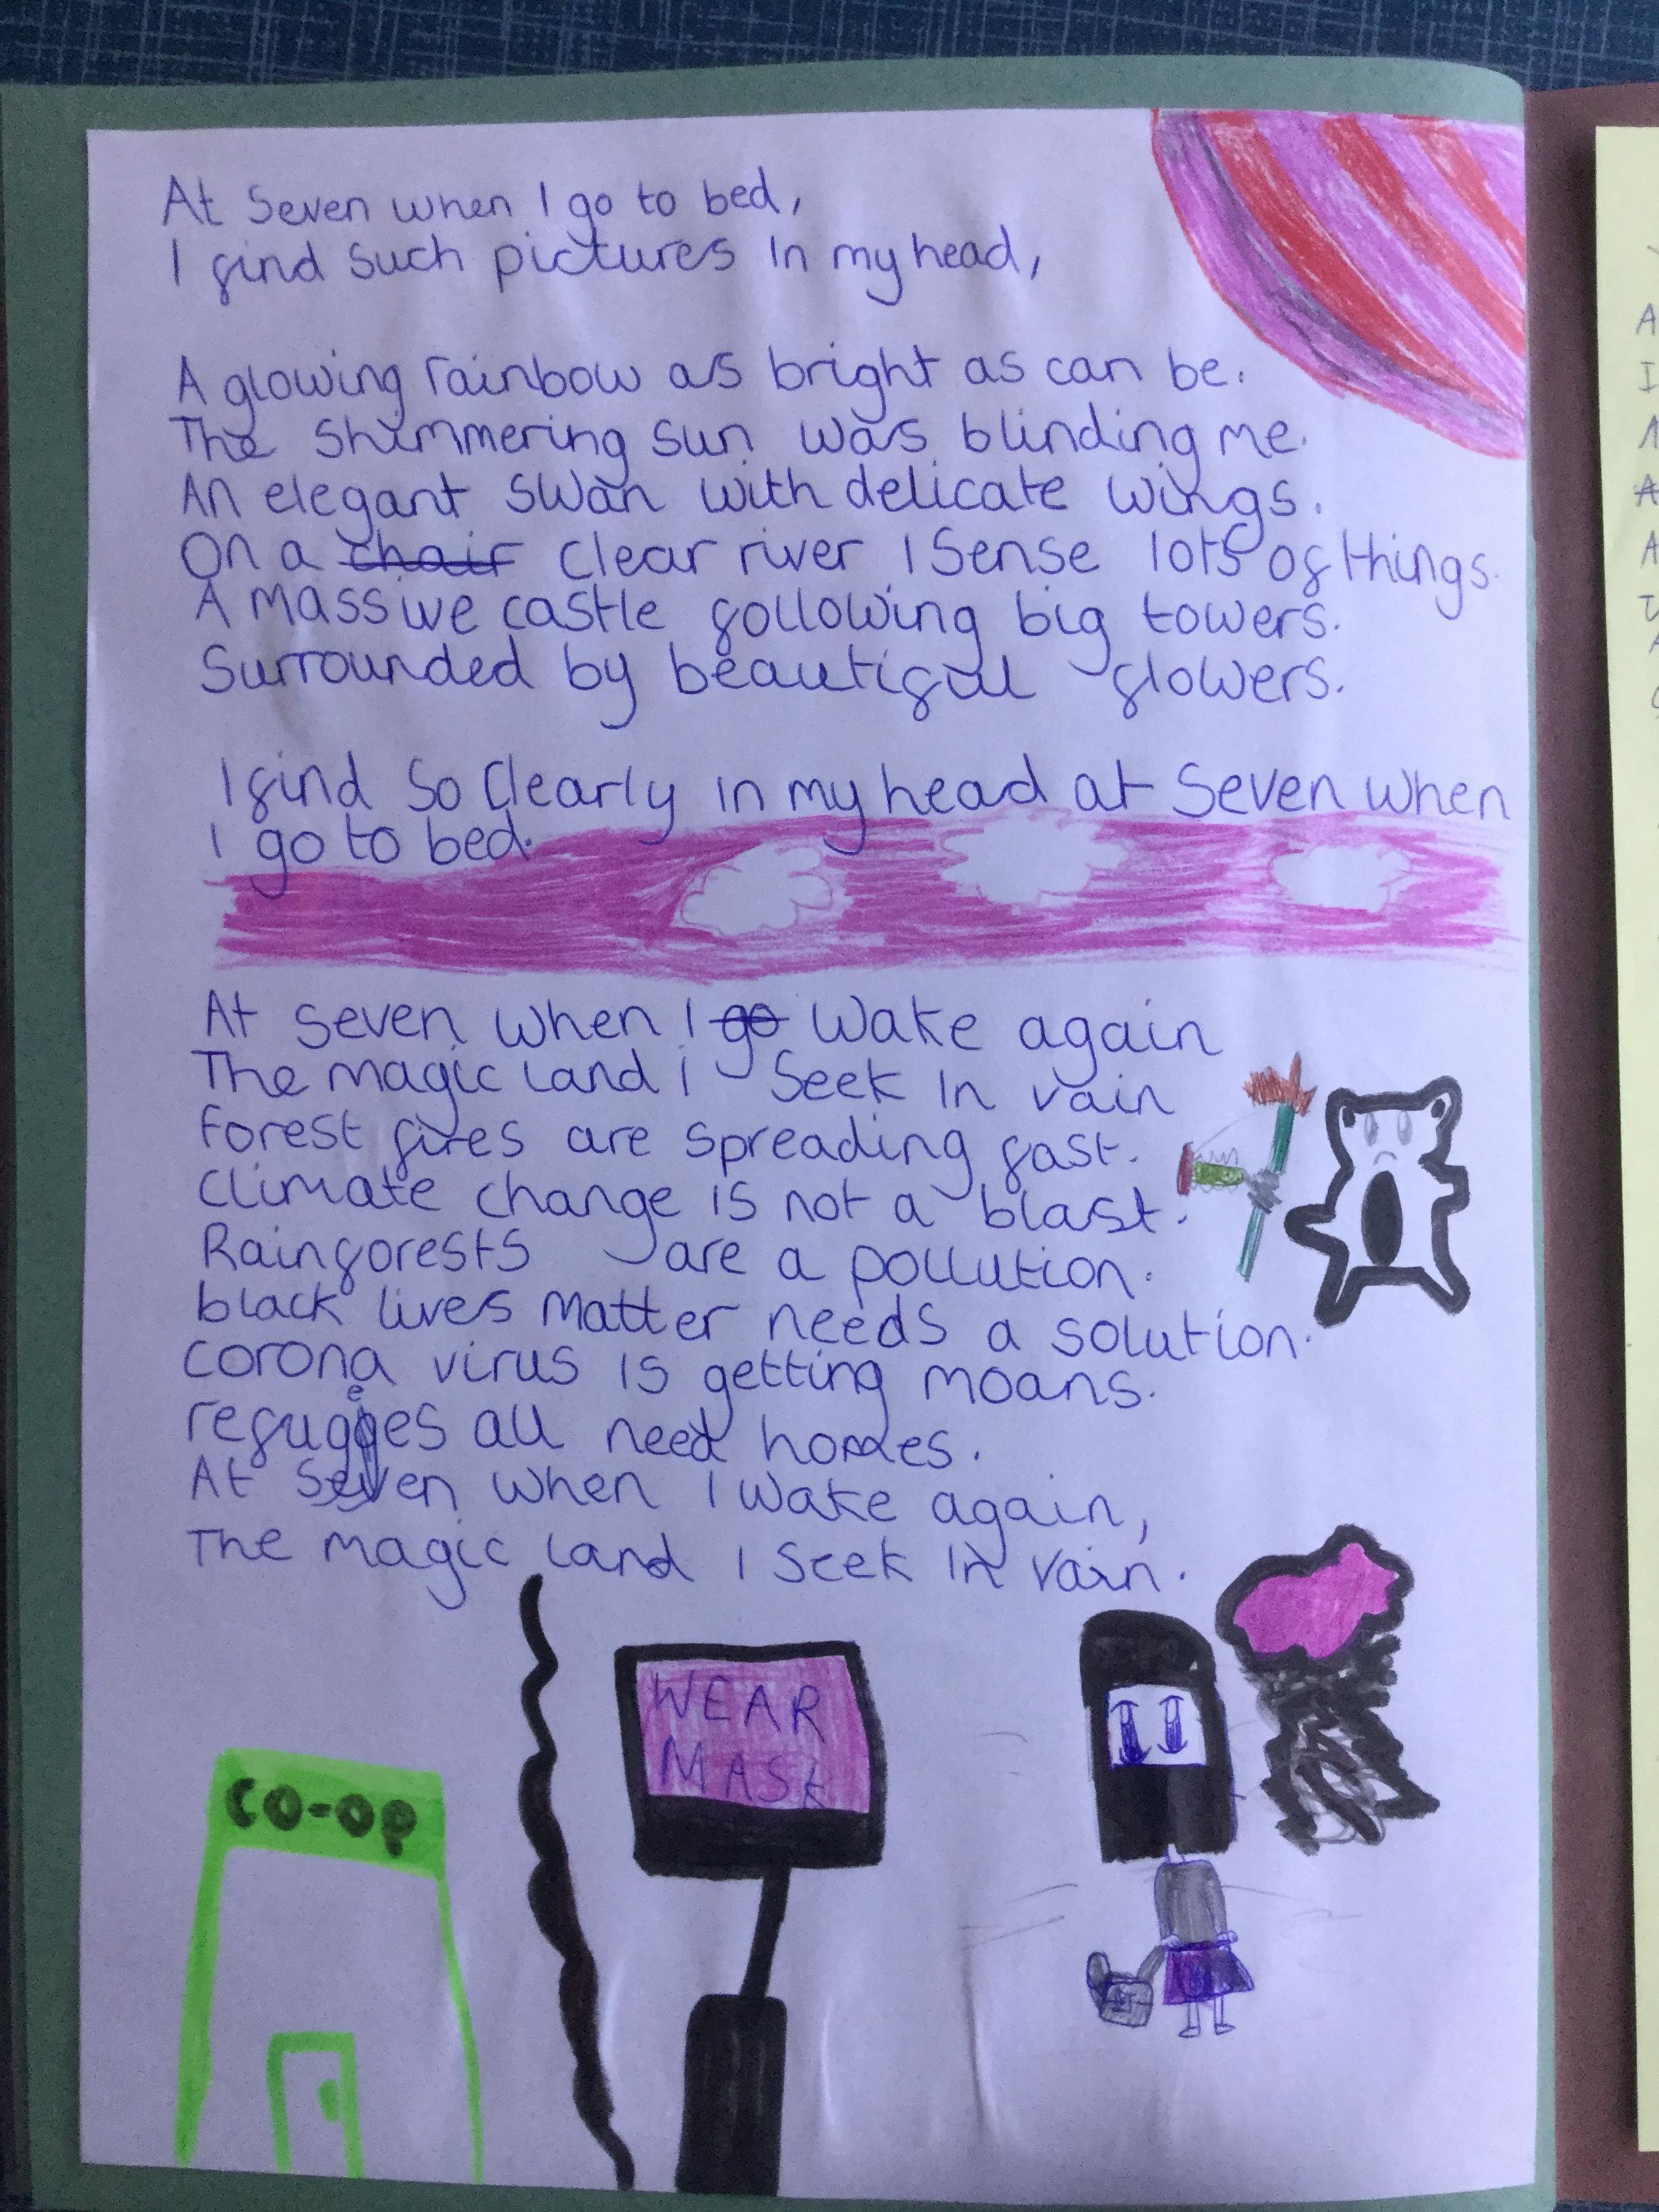 At Seven when I go to bed,
I find such pictures in my head,
A glowing rainbow as bright as can be.
The Shimmering sun was blinding me.
An elegant swan with delicate wings.
On a chair clear river I sense lots of things.
A massive castle following big towers.
Surrounded by beautiful flowers.
I find so clearly in my head at seven when
I go to bed.
At seven when I go wake again
The magic land i seek in vain
forest fires are spreading fast.
climate change is not a blast.
Rainforests are a pollution.
black lives matter needs a solution.
corona virus is getting moans.
refugees all need homes.
At seven when I wake again,
The magic land I seek in vain.
WEAR
MASK
CO-OP